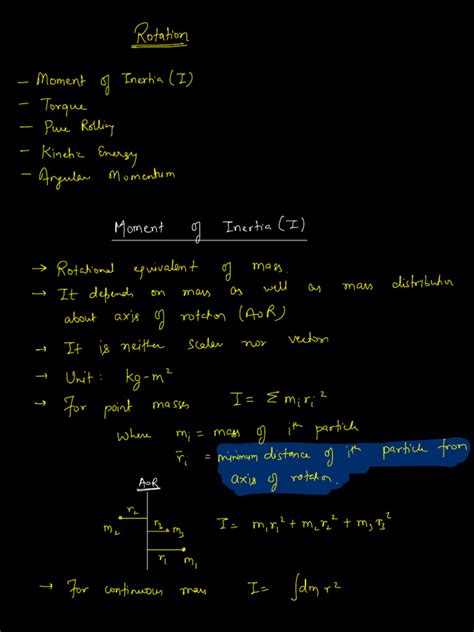 Rotation
- Moment of Inertia (I)
- Torque
- Pure Rolling
- Kinetic Energy
- Angular Momentum
Moment of Inertia (I)
→ Rotational equivalent of mass.
→ It depends on mass as well as mass distribution
about axis of rotation (AOR)
→ It is neither scalar nor vector
→ Unit : kg-m²
→ For point masses I = Σ mᵢrᵢ²
where mᵢ = mass of iᵗʰ particle
rᵢ = minimum distance of iᵗʰ particle from
axis of rotation.
AOR
r₂
m₂
r₃
m₃
r₁
m₁
I = m₁r₁² + m₂r₂² + m₃r₃²
→ For continuous mass I = ∫dm r²